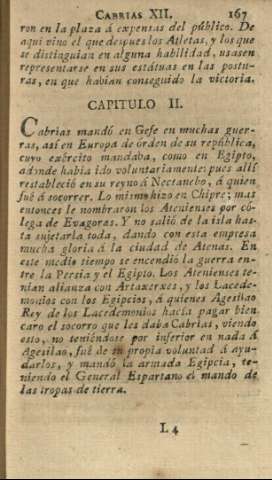 CABRIAS XII. 167
ron en la plaza á expensas del público. De
aqui vino el que despues los Atletas, y los que
se distinguian en alguna habilidad, usasen
representarse en sus estátuas en las postu-
ras, en que habian conseguido la victoria.
CAPITULO II.
Cabrias mandó en Gefe en muchas guer-
ras, asi en Europa de órden de su república,
cuyo exército mandaba, como en Egipto,
adonde habia ido voluntariamente: pues allí
restableció en su reyno á Nectanebo, á quien
fué á socorrer. Lo mismo hizo en Chipre; mas
entonces le nombraron los Atenienses por co-
lega de Evagoras. Y no salió de la isla has-
ta sujetarla toda, dando con esta empresa
mucha gloria á la ciudad de Atenas. En
este medio tiempo se encendio la guerra en-
tre la Persia y el Egipto. Los Atenienses te-
nian alianza con Artaxerxes, y los Lacede-
monios con los Egipcios, á quienes Agesilao
Rey de los Lacedemonios hacia pagar bien
caro el socorro que les daba Cabrias, viendo
esto, no teniéndose por inferior en nada á
Agesilao, fué de su propia voluntad á ayu-
darlos, y mandó la armada Egipcia, te-
niendo el General Espartano el mando de
las tropas de tierra.
L4